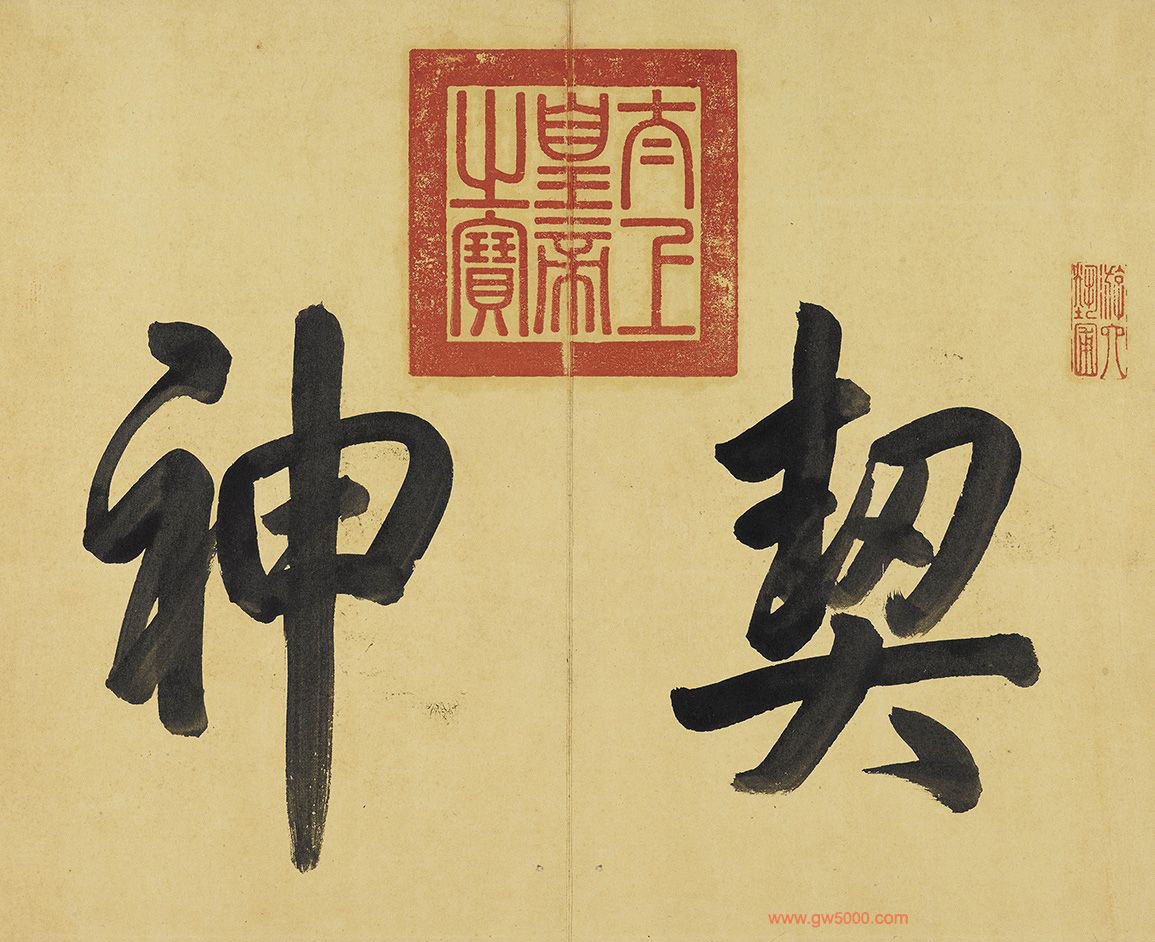 游六
藝圃
契神
太上
皇帝
之寶
www.gw5000.com